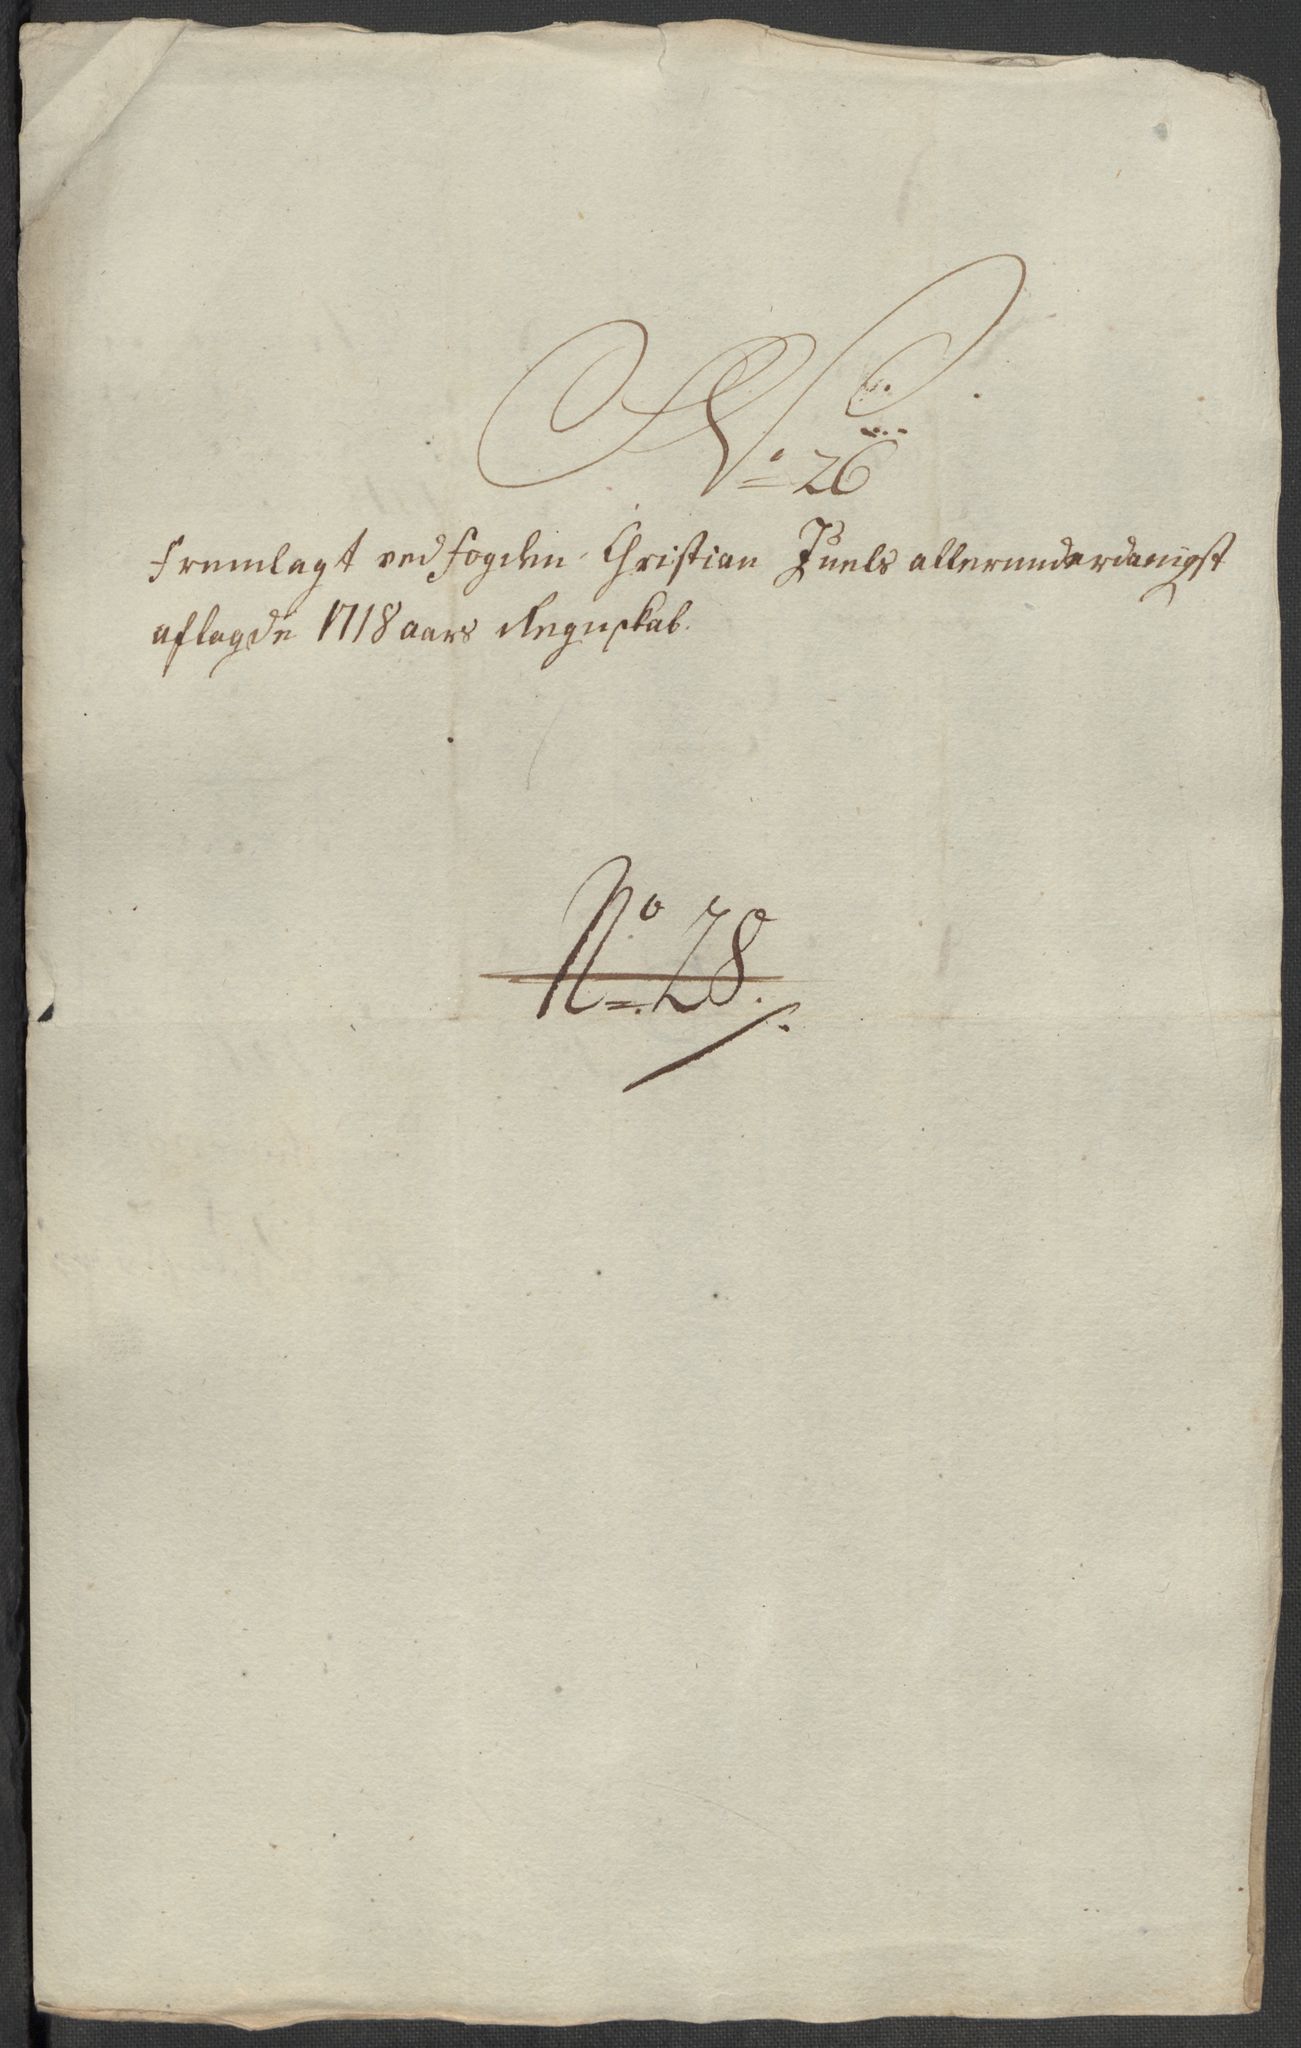 No 26
Fremlagt ved fogden Christian Juels allerunderdanigst
aflagde 1718 aars Regnskab.
No 28.